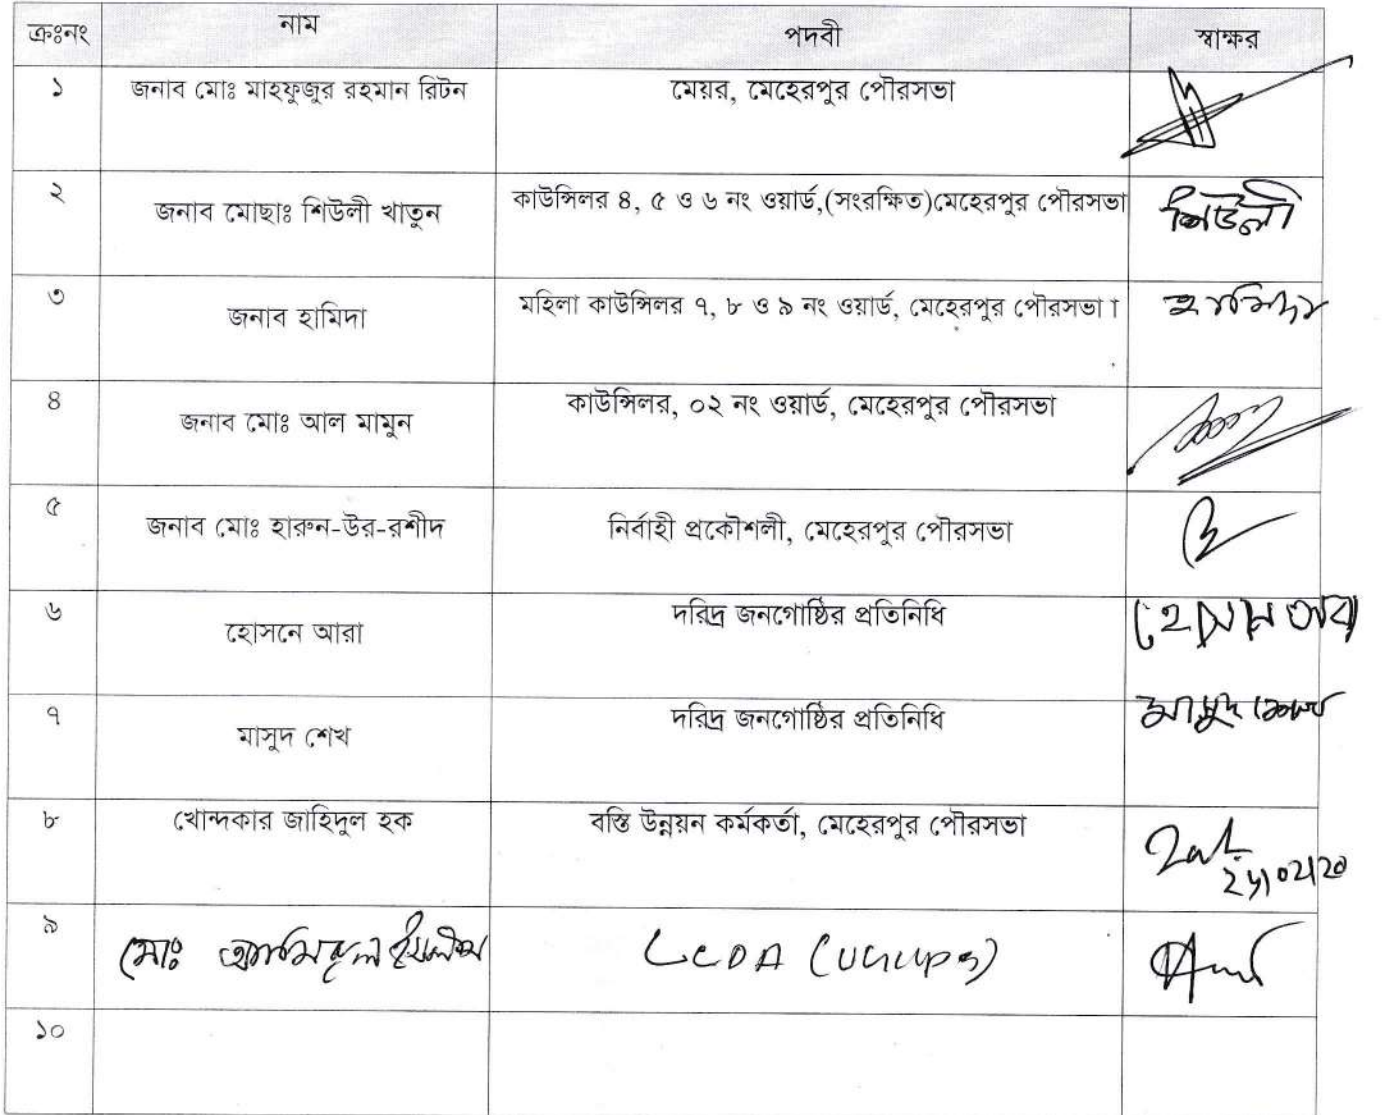 ক্রঃনং নাম পদবী স্বাক্ষর
১ জনাব মোঃ মাহফুজুর রহমান রিটন মেয়র, মেহেরপুর পৌরসভা
২ জনাব মোছাঃ শিউলী খাতুন কাউন্সিলর ৪, ৫ ও ৬ নং ওয়ার্ড,(সংরক্ষিত)মেহেরপুর পৌরসভা শিউলী
৩ জনাব হামিদা মহিলা কাউন্সিলর ৭, ৮ ও ৯ নং ওয়ার্ড, মেহেরপুর পৌরসভা। হামিদা
৪ জনাব মোঃ আল মামুন কাউন্সিলর, ০২ নং ওয়ার্ড, মেহেরপুর পৌরসভা
৫ জনাব মোঃ হারুন-উর-রশীদ নির্বাহী প্রকৌশলী, মেহেরপুর পৌরসভা
৬ হোসনে আরা দরিদ্র জনগোষ্ঠির প্রতিনিধি হোসনে আরা
৭ মাসুদ শেখ দরিদ্র জনগোষ্ঠির প্রতিনিধি মাসুদ শেখ
৮ খোন্দকার জাহিদুল হক বস্তি উন্নয়ন কর্মকর্তা, মেহেরপুর পৌরসভা
৯ মোঃ ইসলাম
১০